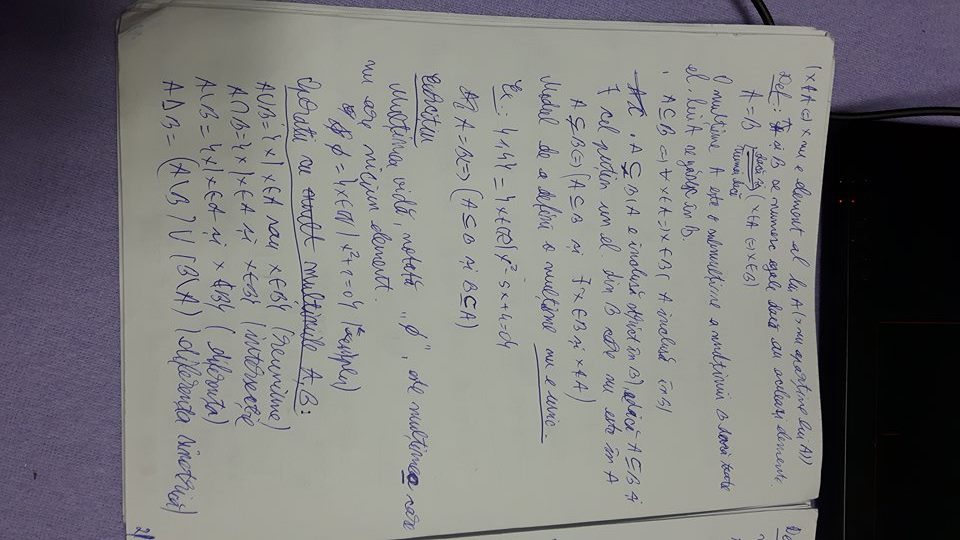 (x∉A ⇔ x nu e element al lui A (= nu aparține lui A))
Def.: A și B se numesc egale dacă au aceleași elemente.
A = B dacă și numai dacă (x∈A ⇔ x∈B)
O mulțime A este o submulțime a mulțimii B dacă toate
el. lui A se găsesc în B.
· A ⊆ B ⇔ ∀ x∈A ⇒ x∈B ( A inclusă în B)
· A ⊊ B (A e inclusă strict în B), adică A ⊆ B și
∃ cel puțin un el. din B care nu este în A
A ⊊ B ⇔ (A ⊆ B și ∃ x∈B și x∉A)
Modul de a defini o mulțime nu e unic.
Ex: {1,4} = {x∈ℝ | x²-5x+4=0}
A = B ⇔ (A ⊆ B și B ⊆ A)
Exercițiu
Mulțimea vidă, notată „∅", e mulțimea care
nu are niciun element.
∅ = {x∈ℝ | x²+1=0} (exemplu)
Operații cu mulțimile A, B:
A∪B = {x | x∈A sau x∈B} (reuniune)
A∩B = {x | x∈A și x∈B} (intersecție)
A\B = {x | x∈A și x∉B} (diferența)
A∆B = (A\B) ∪ (B\A) (diferența simetrică)
2/
De